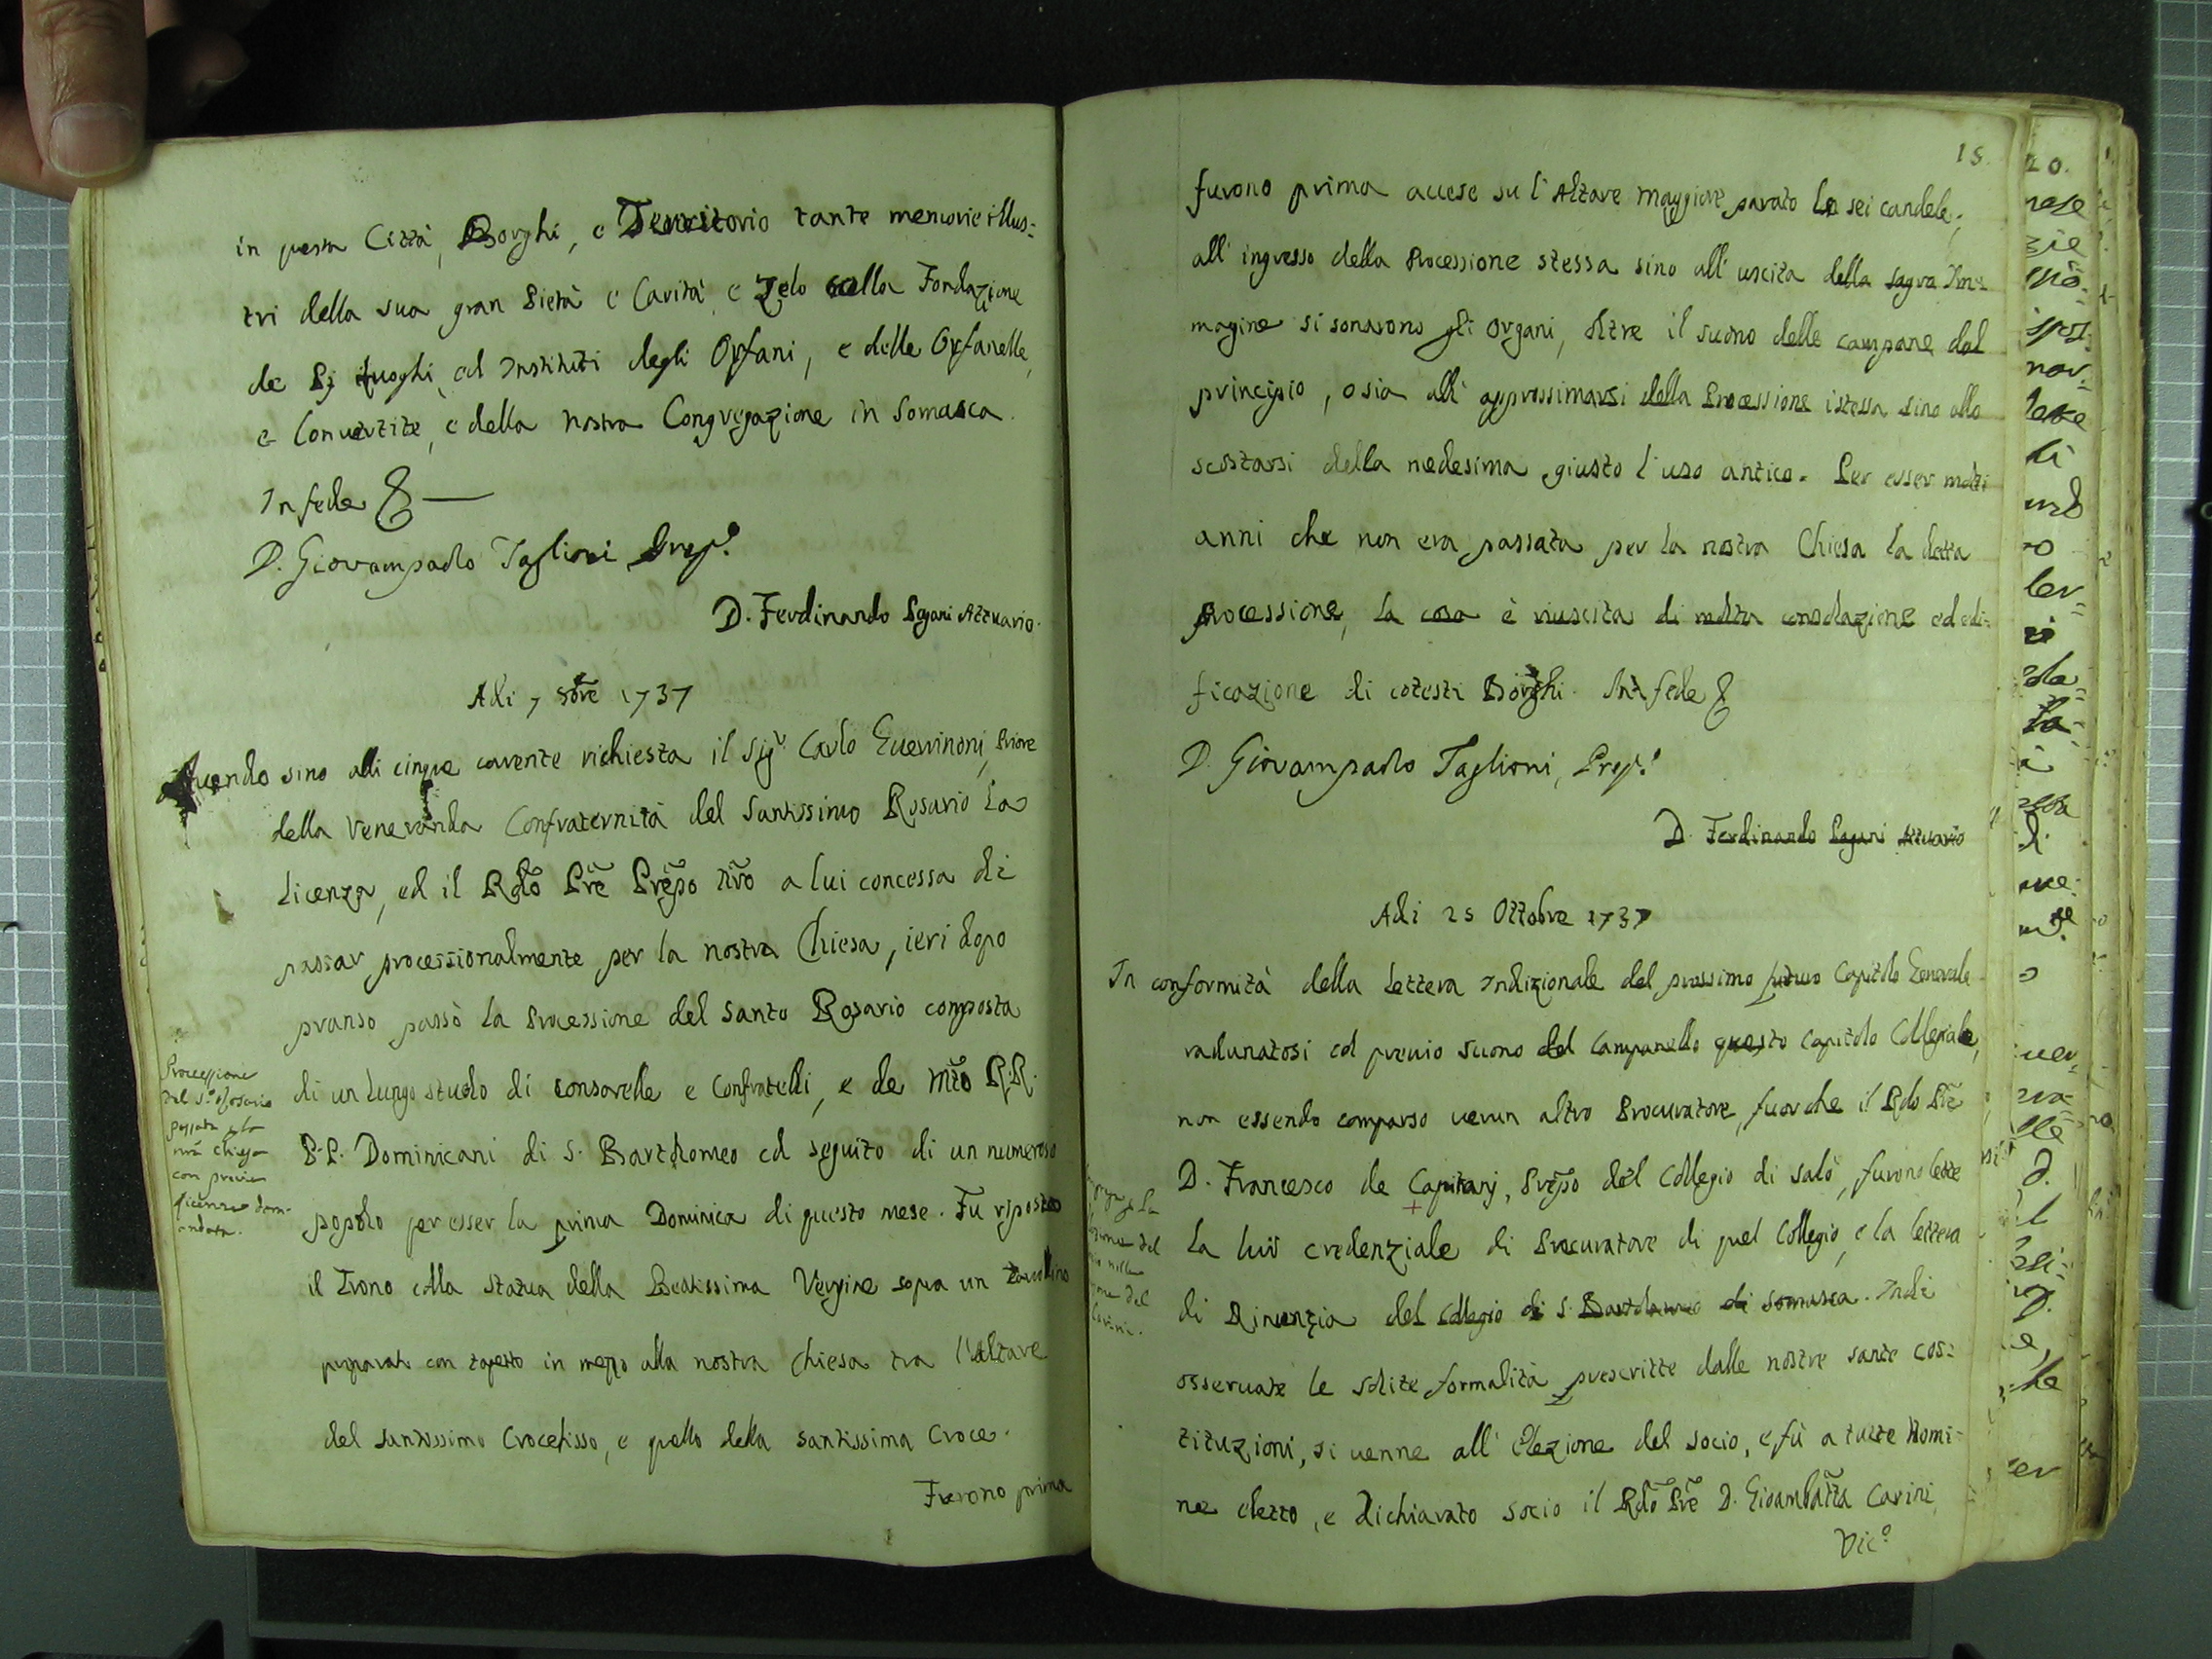 in questa Città, Borghi, e Territorio tante memorie illus:
tri della sua gran Pietà e Carità, e Zelo colla Fondazione
de Pij Luoghi, ed Instituti degli Orfani, e delle Orfanelle,
e Convertite, e della nostra Congregazione in Somasca.
In fede &
D. Giovampaolo Taglioni Prep.º
D. Ferdinando Pagani Attuario.
Adi 7 8bre 1737
Avendo sino alli cinque corrente richiesta il Sigr Carlo Guerrinoni, Priore
della Veneranda Confraternità del Santissimo Rosario la
Licenza, ed il Rdo Pre Prepo nro a lui concessa di
passar processionalmente per la nostra Chiesa, ieri dopo
pranso passò la Processione del Santo Rosario composta
di un lungo stuolo di Consorelle e Confratelli, e de Mto R.R.
P.P. Dominicani di S. Bartholomeo col seguito di un numeroso
popolo per esser la prima Dominica di questo mese. Fu riposto
il Trono colla Statua della Beatissima Vergine sopra un tavolino
preparato con tapetto in mezzo alla nostra Chiesa tra l'Altare
del Santissimo Crocefisso, e quello della Santissima Croce.
Furono prima
Processione
del S.º Rosario
passata p la
nrã chiesa
con previa
licenza dom-
andata.
18.
furono prima accese su l'Altare Maggiore parato le sei candele,
all'ingresso della Processione stessa sino all'uscita della Sagra Im=
magine si sonarono gli Organi, oltre il suono delle campane dal
principio, o sia all'approssimarsi della Processione istessa sino allo
scostarsi della medesima, giusto l'uso antico. Per esser molti
anni che non era passata per la nostra Chiesa la detta
Processione, la cosa è riuscita di molta consolazione ed edi=
ficazione di cotesti Borghi. In fede &
D. Giovampaolo Taglioni, Prep.º
D. Ferdinando Pagani Attuario
Adi 25 Ottobre 1737
In conformità della Lettera Indizionale del prossimo futuro Capitolo Generale
radunatosi col previo suono del Campanello questo Capitolo Collegiale,
non essendo comparso verun altro Procuratore, fuorche il Rdo Pre
D. Francesco de Capitanj, Prepo del Collegio di Salò, furono lette
la lui credenziale di Procuratore di quel Collegio, e la lettera
di Rinunzia del Collegio di S. Bartolomeo di Somasca. Indi
osservate le solite formalità prescritte dalle nostre sante Cos=
tituzioni, si venne all'Elezione del Socio, e fù a tutte Nomi=
ne eletto, e dichiarato Socio il Rdo Pre D. Gioambatta Carini
Vic.º